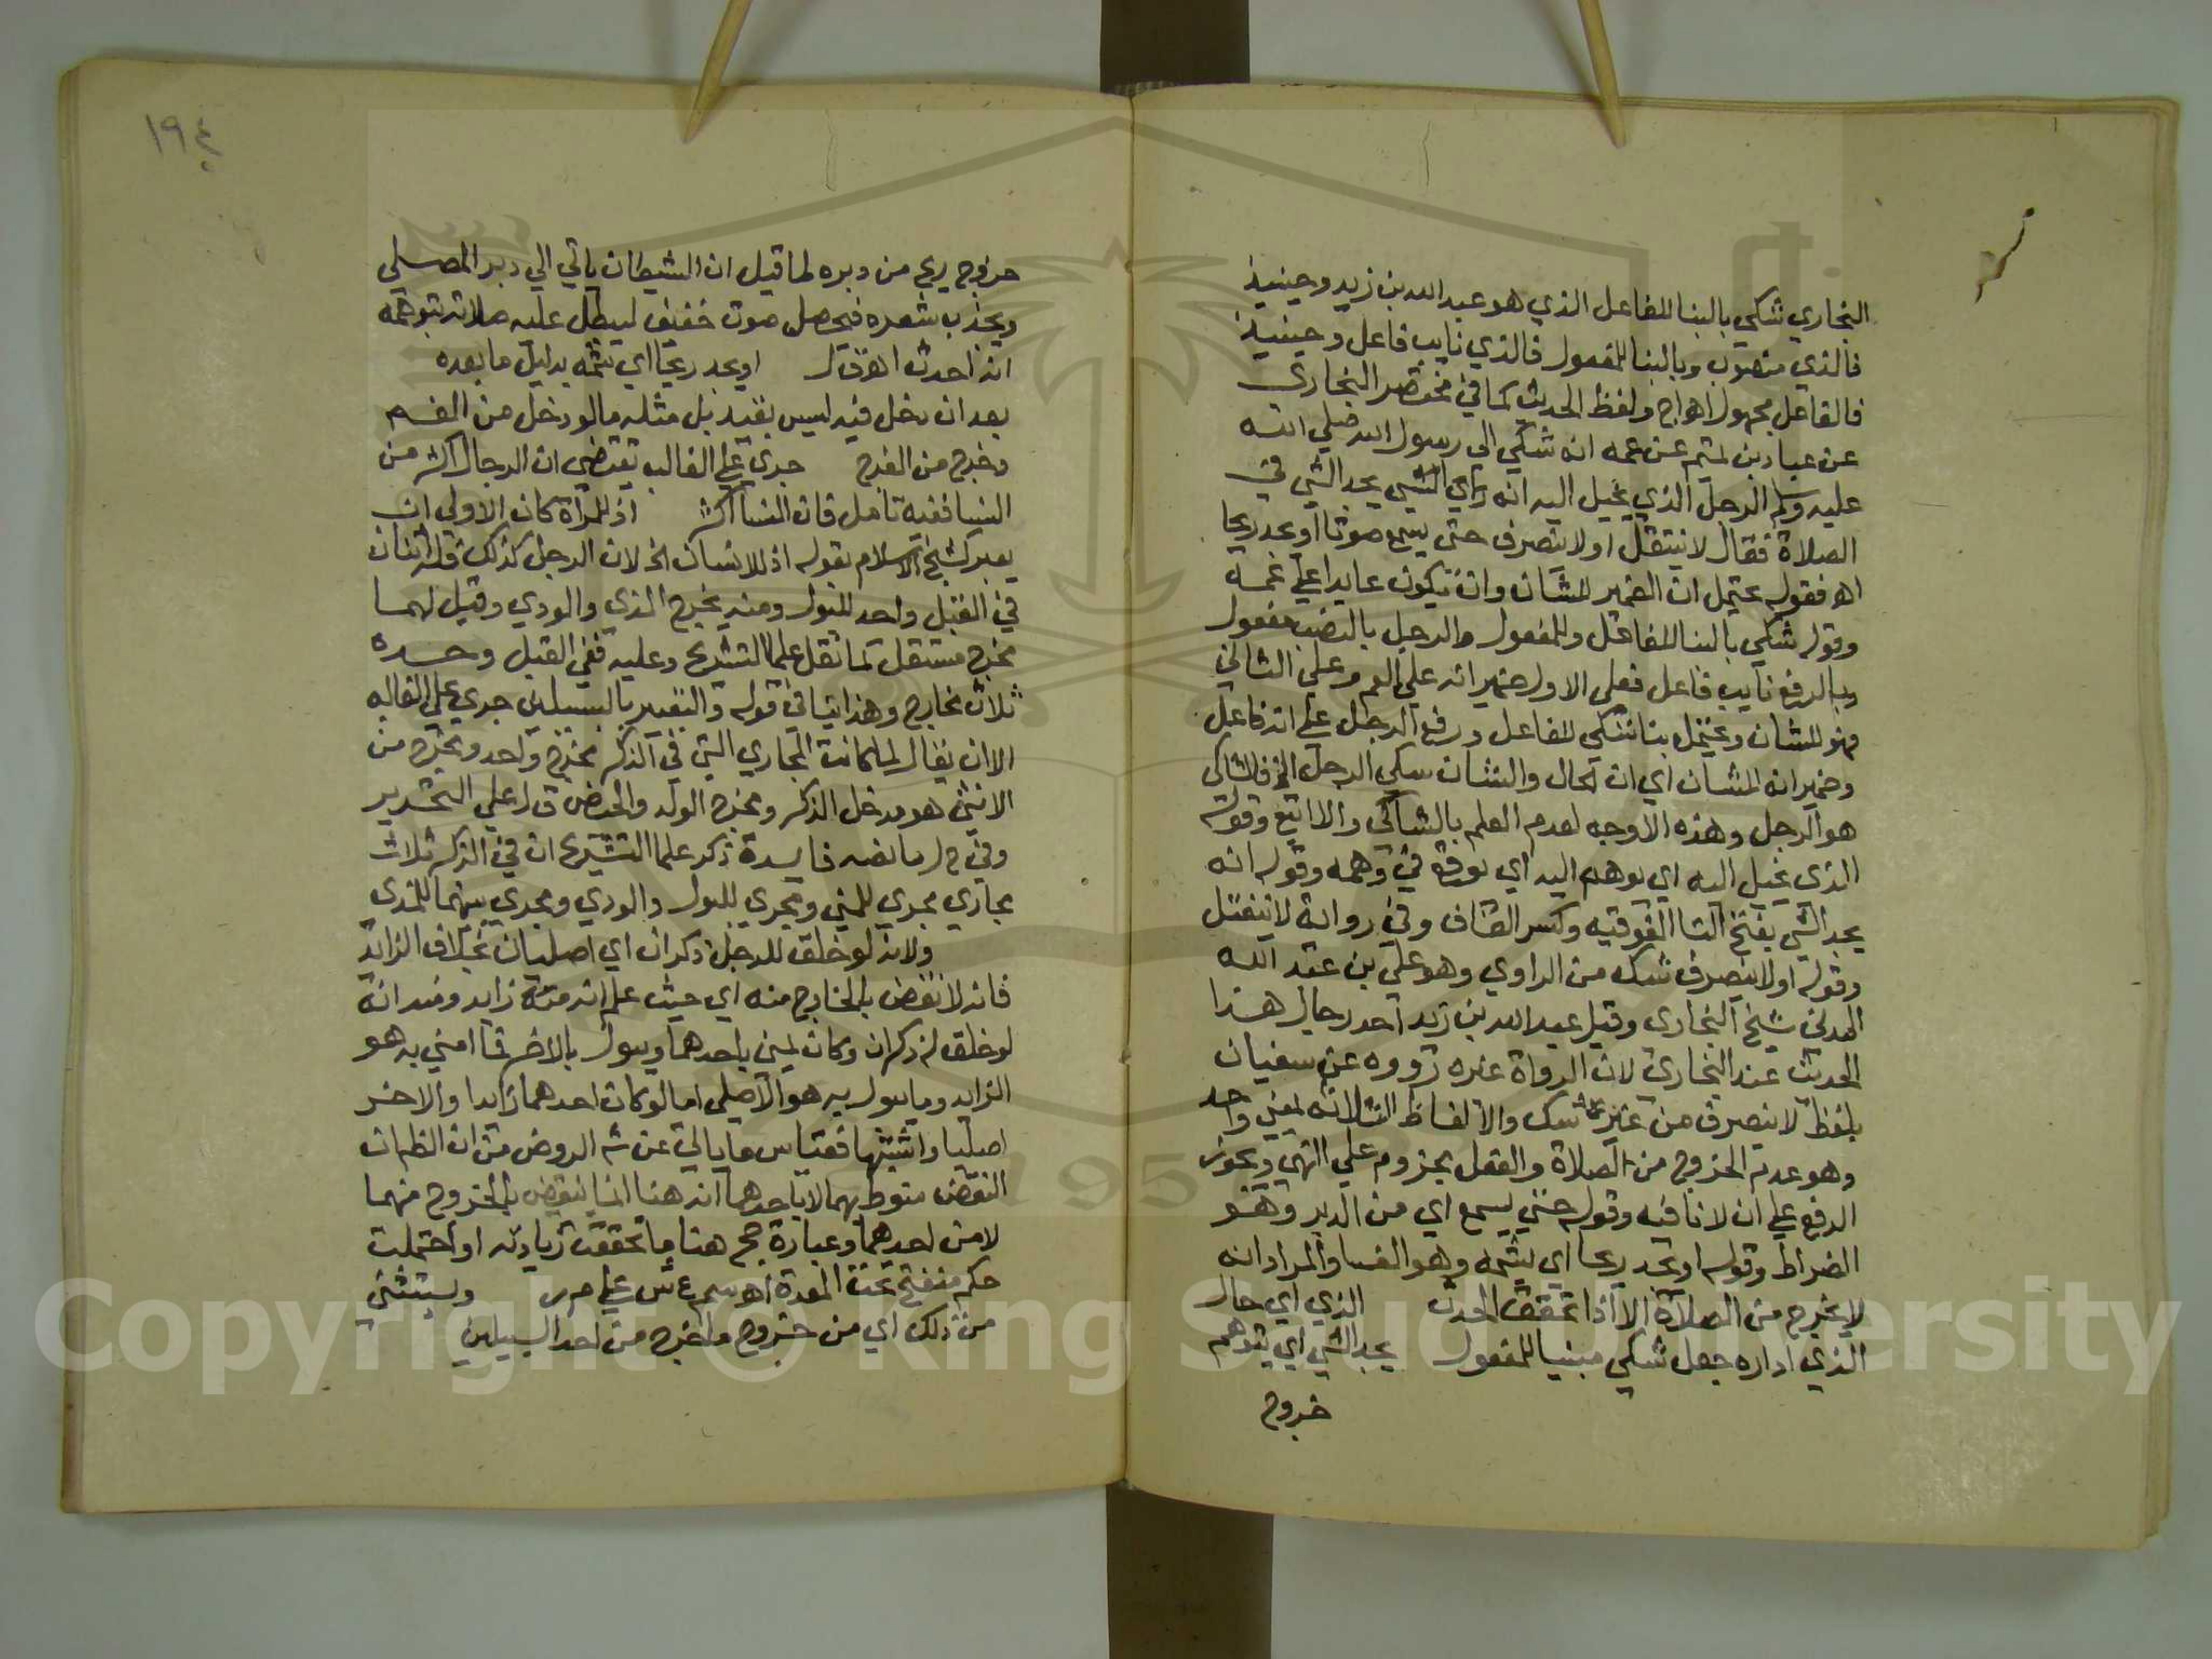 البخاري شكي بالبنا للفاعل الذي هو عبد الله بن زيد وحينيذ
فالذي منصوب وبالبنا للمفعول فالذي نايب فاعل وحينيذ
فالفاعل مجهول اهراج ولفظ الحديث كما في مختصر البخاري
عن عباد بن تميم عن عمه انه شكي الى رسول الله صلي الله
عليه وسلم الرجل الذي يخيل اليه انه يجد الشي في
الصلاة فقال لا ينتقل او لا ينصرف حتى يسمع صوتا او يجد ريحا
اه فقوله يحتمل ان الضمير للشان وان يكون عايدا علي عمه
وقوله شكي بالبنا للفاعل وللمفعول والرجل بالنصب مفعول
وبالرفع نايب فاعل فعلي الاول ضمير انه علي العم وعلي الثاني
فهو للشان ويحتمل بنا شكي للفاعل ورفع الرجل علي انه فاعل
وضمير انه للشان اي ان الحال والشان شكي الرجل الخ فالشاكي
هو الرجل وهذه الاوجه لعدم العلم بالشاكي والا اتبع وقوله
الذي يخيل اليه اي يوهم اليه اي يوقع في وهمه وقوله انه
يجد الشي بفتح التا الفوقيه وكسر القاف وفي رواية لا ينفتل
وقوله او لا ينصرف شك من الراوي وهو علي بن عبد الله
المدني شيخ البخاري وقيل عبد الله بن زيد احد رجال هذا
الحديث عند البخاري لان الرواة غيره رووه عن سفيان
بلفظ لا ينصرف من غير شك والالفاظ الثلاثه لمعني واحد
وهو عدم الخروج من الصلاة والفعل مجزوم علي النهي ويجوز
الرفع علي ان لا نافيه وقوله حتي يسمع اي من الدبر وهو
الضراط وقوله او يجد ريحا اي يشمه وهو الفسا والمراد انه
لا يخرج من الصلاة الا اذا تحقق الحدث الذي اي حال
الذي اداره جعل شكي مبنيا للمفعول يجد الشي اي يتوهم
خروج
١٩٤
خروج ريح من دبره لما قيل ان الشيطان ياتي الي دبر المصلي
ويجذب شعره فيحصل صوت خفيف ليبطل عليه صلاته بتوهمه
انه احدث اهق ل او يجد ريحا اي يشمه بدليل ما بعده
بعد ان دخل فيه ليس بقيد بل مثله ما لو دخل من الفم
وخرج من الفرج جري علي الغالب يقتضي ان الرجال اكثر من
النسا ففيه تامل فان النسا اكثر اذ للمراة كان الاولي ان
يعبر كشيخ الاسلام بقوله اذ للانسان الخ لان الرجل كذلك فله اثنان
في القبل واحد للبول ومنه يخرج المذي والودي وقيل لهما
مخرج مستقل كما نقل علما التشريح وعليه ففي القبل وحده
ثلاث مخارج وهذا ينافي قوله والتعبير بالسبيلين جري علي الغالب
الا ان يقال لما كانت المجاري التي في الذكر مخرج واحد ومخرج من
الانثي هو مدخل الذكر ومخرج الولد والحيض ق ل علي التحرير
وفي ح ل ما نصه فايدة ذكر علما التشريح ان في الذكر ثلاث
مجاري مجري للمني ومجري للبول والودي ومجري بينهما للمذي
ولانه لو خلق للرجل ذكران اي اصليان بخلاف الزايد
فانه لا نقض بالخارج منه اي حيث علم انه منه زايد ومنه انه
لو خلق له ذكران وكان يمني باحدهما ويبول بالاخر فما امني به هو
الزايد وما يبول به هو الاصلي اما لو كان احدهما زايدا والاخر
اصليا واشتبها فقياس ما ياتي عن شه الروض من ان
النقض منوط بهما لا باحدهما انه هنا انما ينقض بالخروج منهما
لا من احدهما وعبارة حج هنا ما تحققت زيادته او احتملت
حكم منفتح تحت المعدة اه سم ع ش علي م ر ويستثني
من ذلك اي من خروج ما خرج من احد السبيلين
Copyright © King Saud University
1957